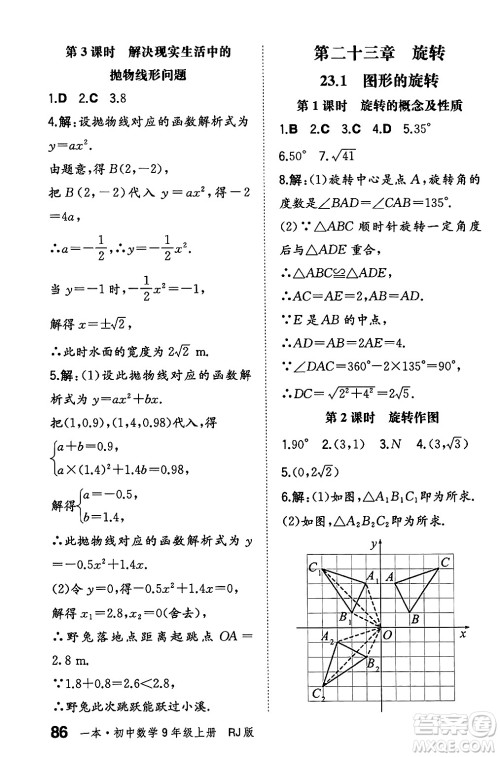 第 3 课时　解决现实生活中的
抛物线形问题
1.D　2.C　3.8
4.解：设抛物线对应的函数解析式为
y=ax².
由题意，得 B(2,-2)，
把 B(2,-2)代入 y=ax²，得-2
=4a，
∴a=-1/2，∴y=-1/2x².
当 y=-1 时，-1/2x²=-1，
解得 x=±√2，
∴此时水面的宽度为 2√2 m.
5.解：(1)设此抛物线对应的函数解
析式为 y=ax²+bx，
把(1,0.9)，(1.4,0.98)代入，得
{a+b=0.9，
a×(1.4)²+1.4b=0.98，
解得{a=-0.5，
b=1.4，
∴此抛物线对应的函数解析式为
y=-0.5x²+1.4x.
(2)令 y=0，则-0.5x²+1.4x=0，
解得 x₁=2.8，x₂=0(舍去)，
∴野兔落地点距离起跳点 OA=
2.8 m.
∵1.8+0.8=2.6<2.8，
∴野兔此次跳跃能跃过小溪.
86　一本·初中数学 9 年级上册　RJ 版
第二十三章　旋转
23.1　图形的旋转
第 1 课时　旋转的概念及性质
1.B　2.C　3.C　4.D　5.35°
6.50°　7.√41
8.解：(1)旋转中心是点 A，旋转角的
度数是∠BAD=∠CAB=135°.
(2)∵△ABC 顺时针旋转一定角
度后与△ADE 重合，
∴△ABC≌△ADE，
∴AB=AD=4，AC=AE.
∵E 为 AB 的中点，
∴AE=1/2AB=2，∴AC=2.
∵∠DAC=360°-2×135°=90°，
∴DC=√2²+4²=2√5.
第 2 课时　旋转作图
1.90°　2.(3,1)　3.N　4.(3,√3)
5.(0,2√2)
6.解：(1)如图，△A₁B₁C₁即为所求.
(2)如图，△A₂B₂C₂即为所求.
y
C₁
A₁
A
C
B₁
B
O
x
A₂
B₂
C₂